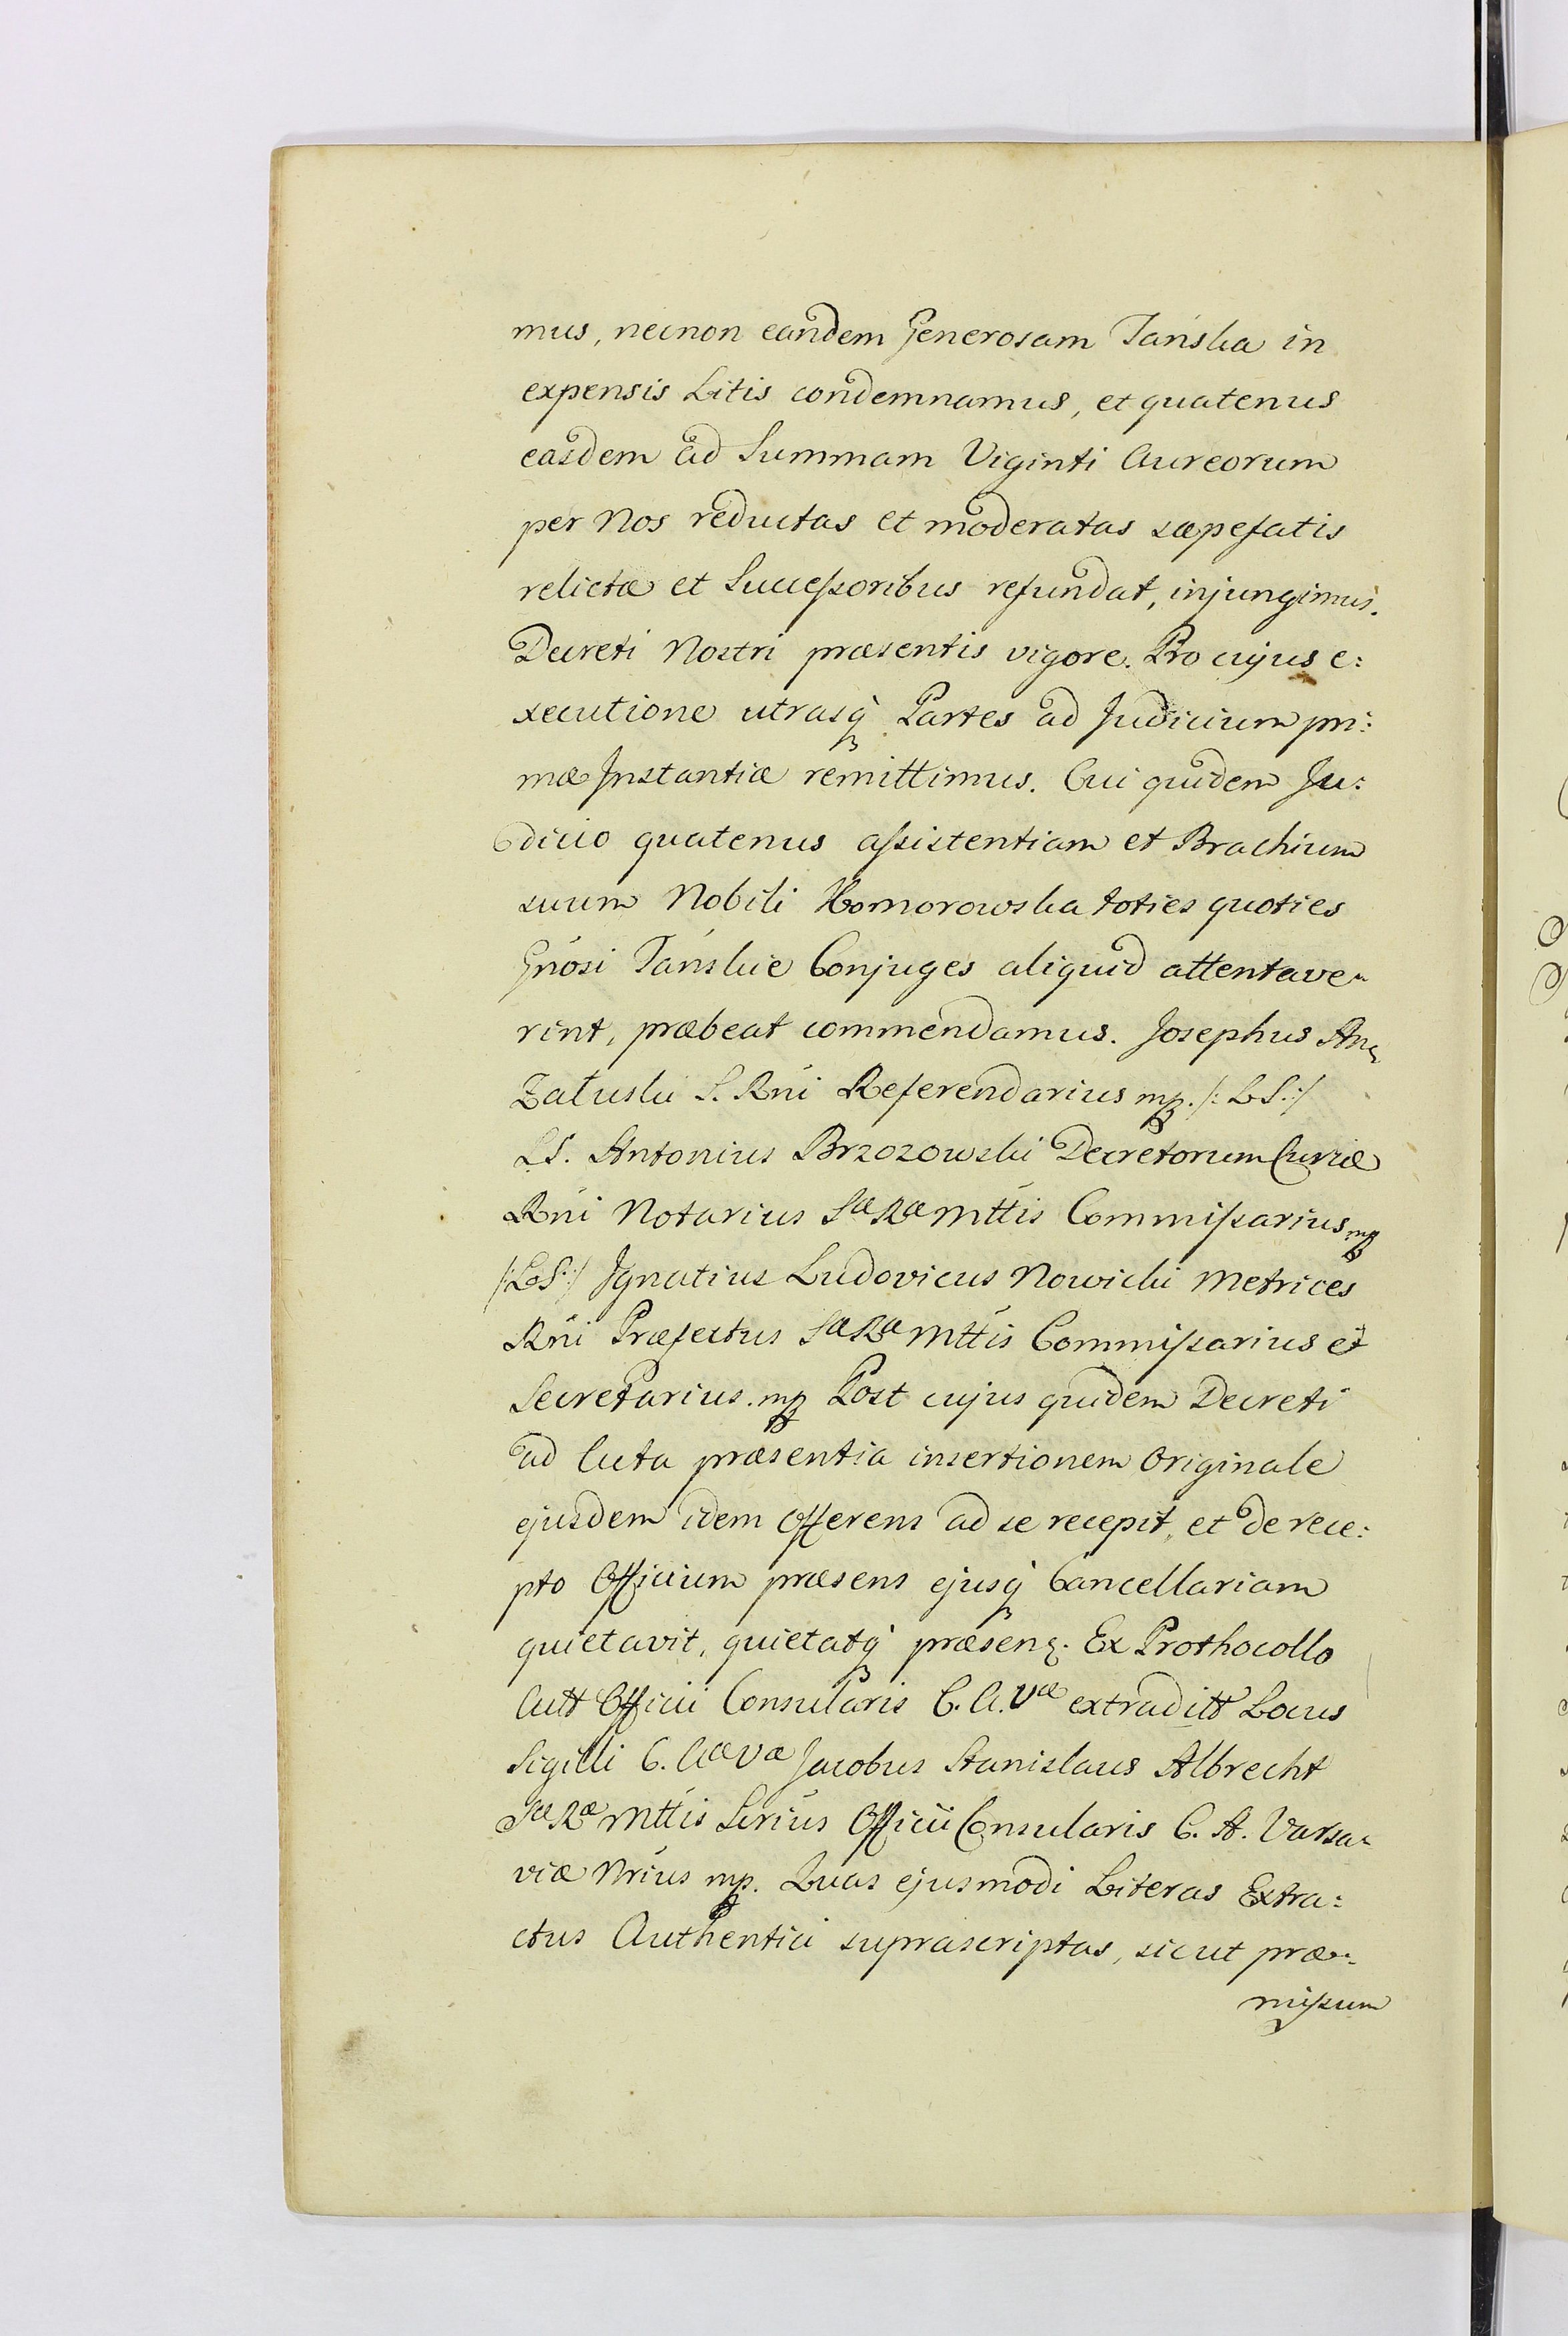 mus, necnon eandem Generosam Tańska in
expensis Litis condemnamus, et quatenus
easdem ad Summam Viginti Aureorum
per Nos reductas et moderatas sæpefatis
relictæ et Successoribus refundat, injungimus.
Decreti Nostri præsentis vigore. Pro cujus e:
xecutione utrasq́ Partes ad Judicium pri:
mæ Instantiæ remittimus. Cui quidem Ju:
dicio quatenus assistentiam et Brachium
suum Nobili Komorowska toties quoties
Gńosi Tańskie Conjuges aliquid attentave-
rint, præbeat commendamus. Josephus An:
Załuski S. Rńi Referendarius mp. /: LS :/
LS. Antonius Brzozowski Decretorum Curiæ
Rńi Notarius Sæ Ræ Mttis Commissarius mp
/: LS :/ Ignatius Ludovicus Nowicki Metrices
Rńi Præfectus Sæ Ræ Mttis Commissarius et
Secretarius. mp Post cujus quidem Decreti
ad Acta præsentia insertionem Originale
ejusdem idem Offerens ad se recepit, et de rece:
pto Officium præsens ejusq́ Cancellariam
quietavit, quietatq́ præsen. Ex Prothocollo
Actt Officii Consularis C. A. Væ extraditt Locus
Sigilli C. Aæ Væ Jacobus Stanislaus Albrecht
Sæ Ræ Mttis Serius Officii Consularis C. A. Varsa-
viæ Nrius mp. Quas ejusmodi Literas Extra:
ctus Authentici suprascriptas, sicut præ-
missum